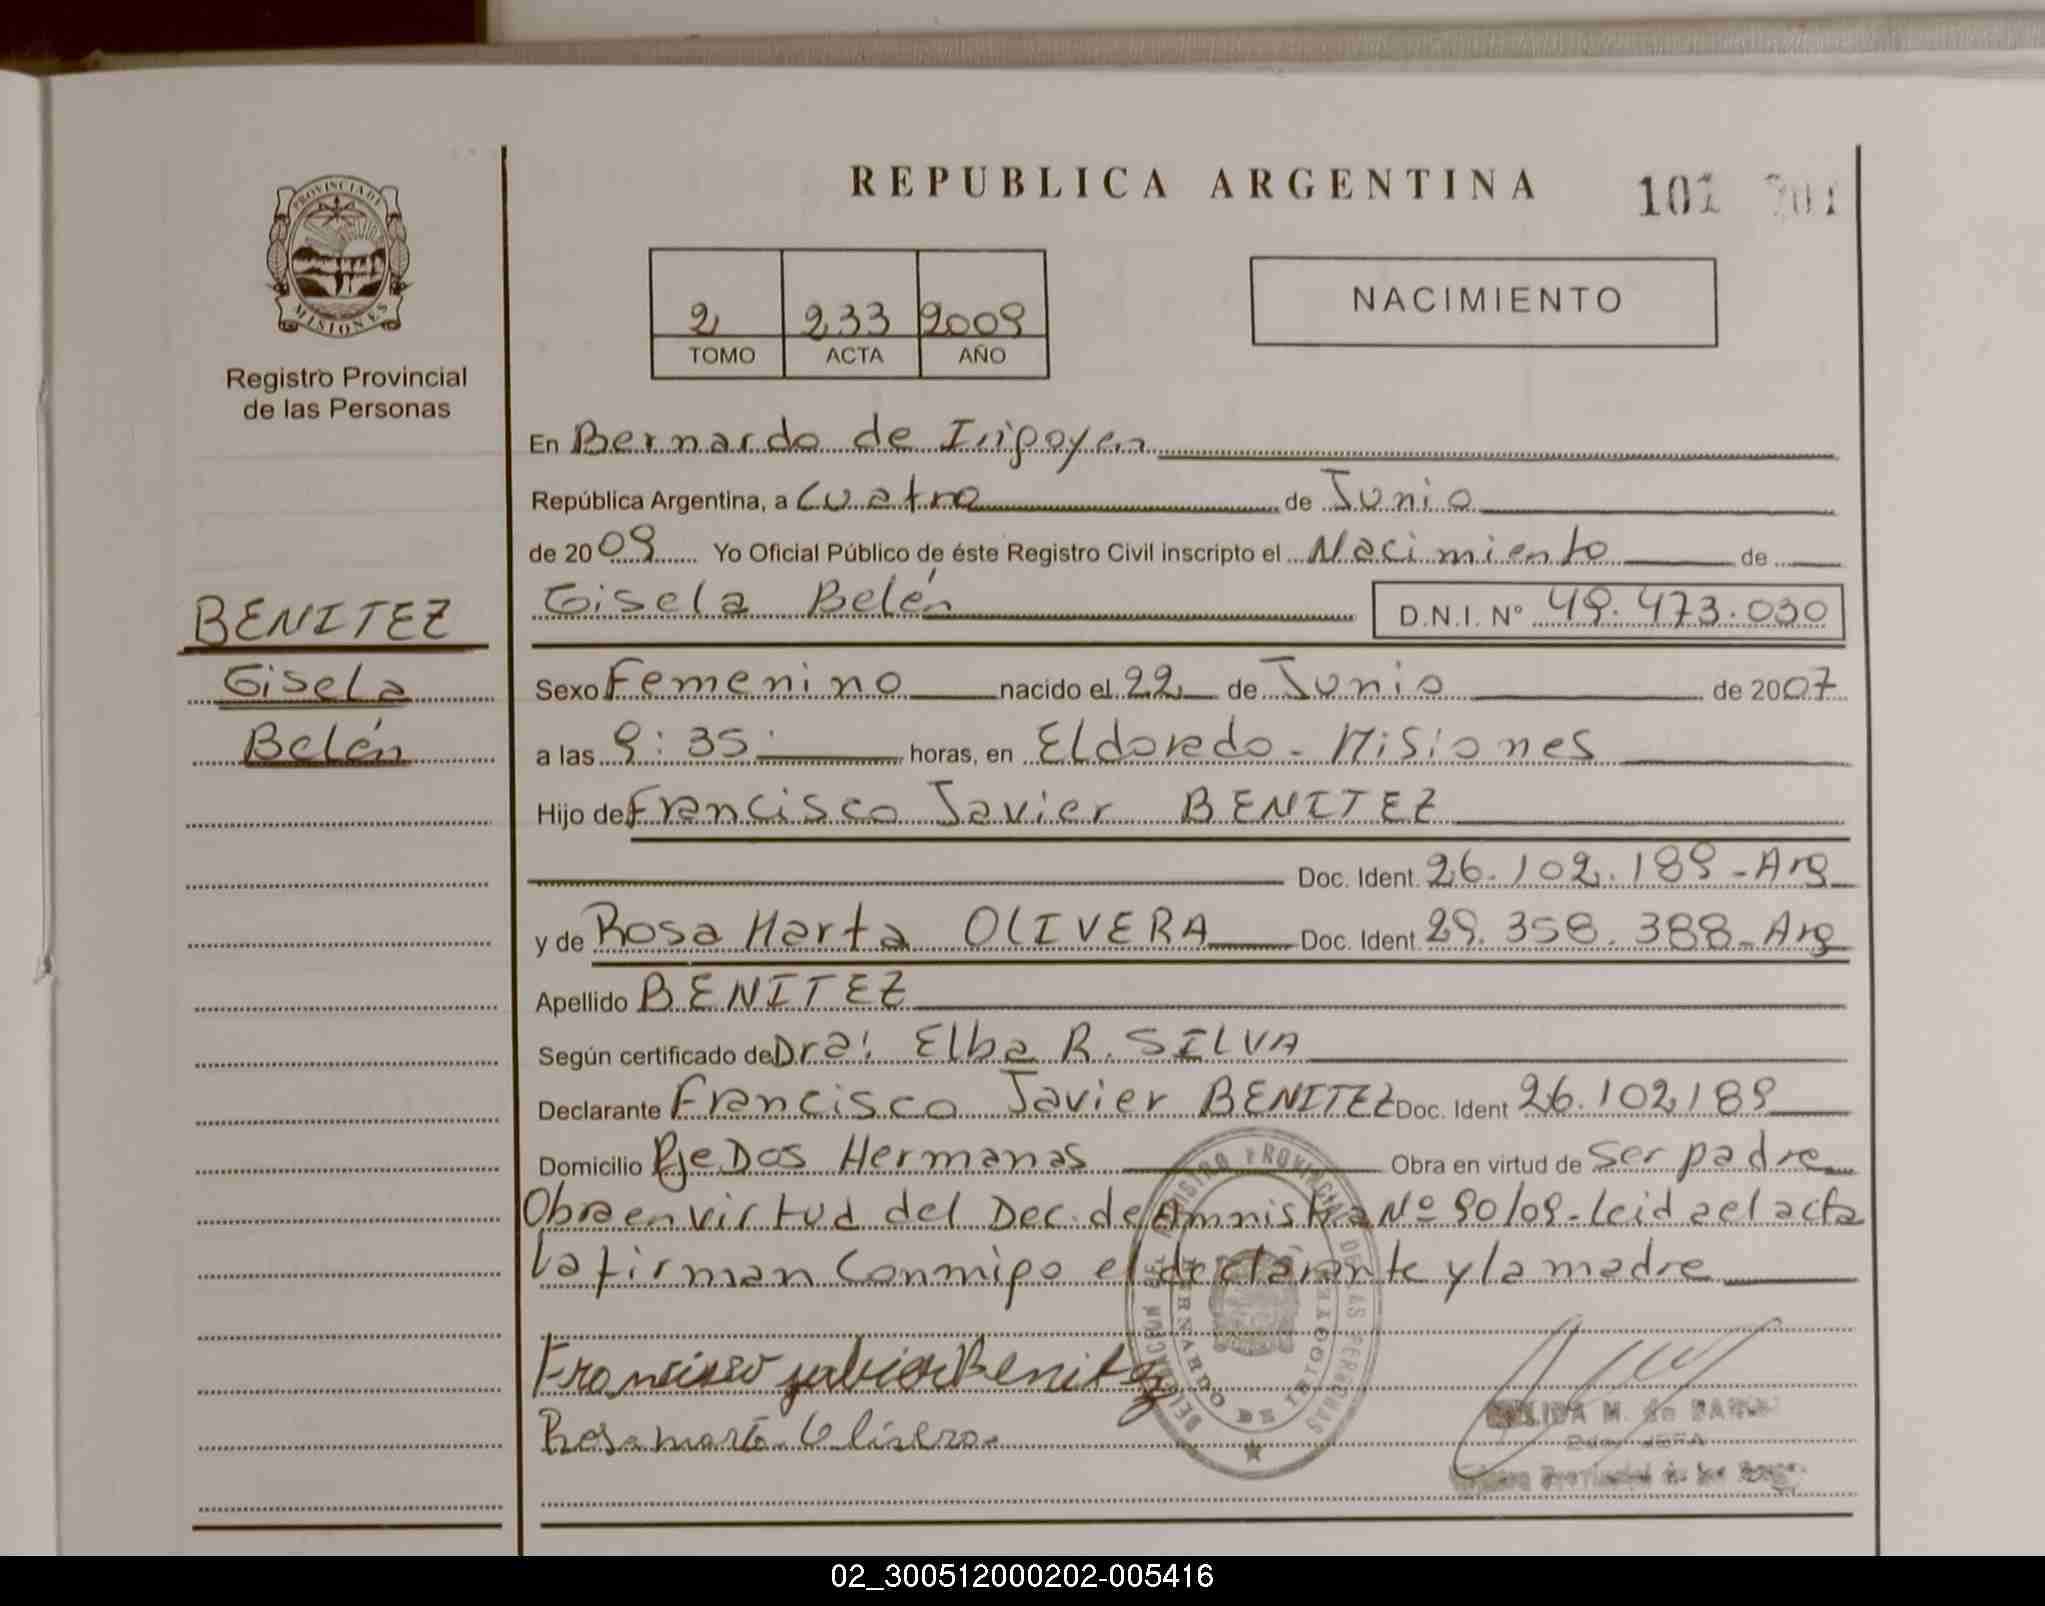 REPUBLICA ARGENTINA 101
PROVINCIA DE MISIONES
Registro Provincial
de las Personas
2 233 2009
TOMO ACTA AÑO
NACIMIENTO
En Bernardo de Irigoyen
República Argentina, a Cuatro de Junio
de 2009 Yo Oficial Público de éste Registro Civil inscripto el Nacimiento de
Gisela Belén D.N.I. Nº 49.473.030
BENITEZ
Gisela
Belén
Sexo Femenino nacido el 22 de Junio de 2007
a las 9:35 horas, en Eldorado - Misiones
Hijo de Francisco Javier BENITEZ
Doc. Ident. 26.102.189-Arg
y de Rosa Marta OLIVERA Doc. Ident 29.358.388-Arg
Apellido BENITEZ
Según certificado de Dra: Elba R. SILVA
Declarante Francisco Javier BENITEZ Doc. Ident 26.102189
Domicilio Pje Dos Hermanas Obra en virtud de Ser padre
Obra en virtud del Dec. de Amnistia Nº 90/09-Leida el acta
la firman conmigo el declarante y la madre
Francisco Benitez
Rosa marta
REGISTRO PROVINCIAL DE LAS PERSONAS
BERNARDO DE IRIGOYEN
02_300512000202-005416